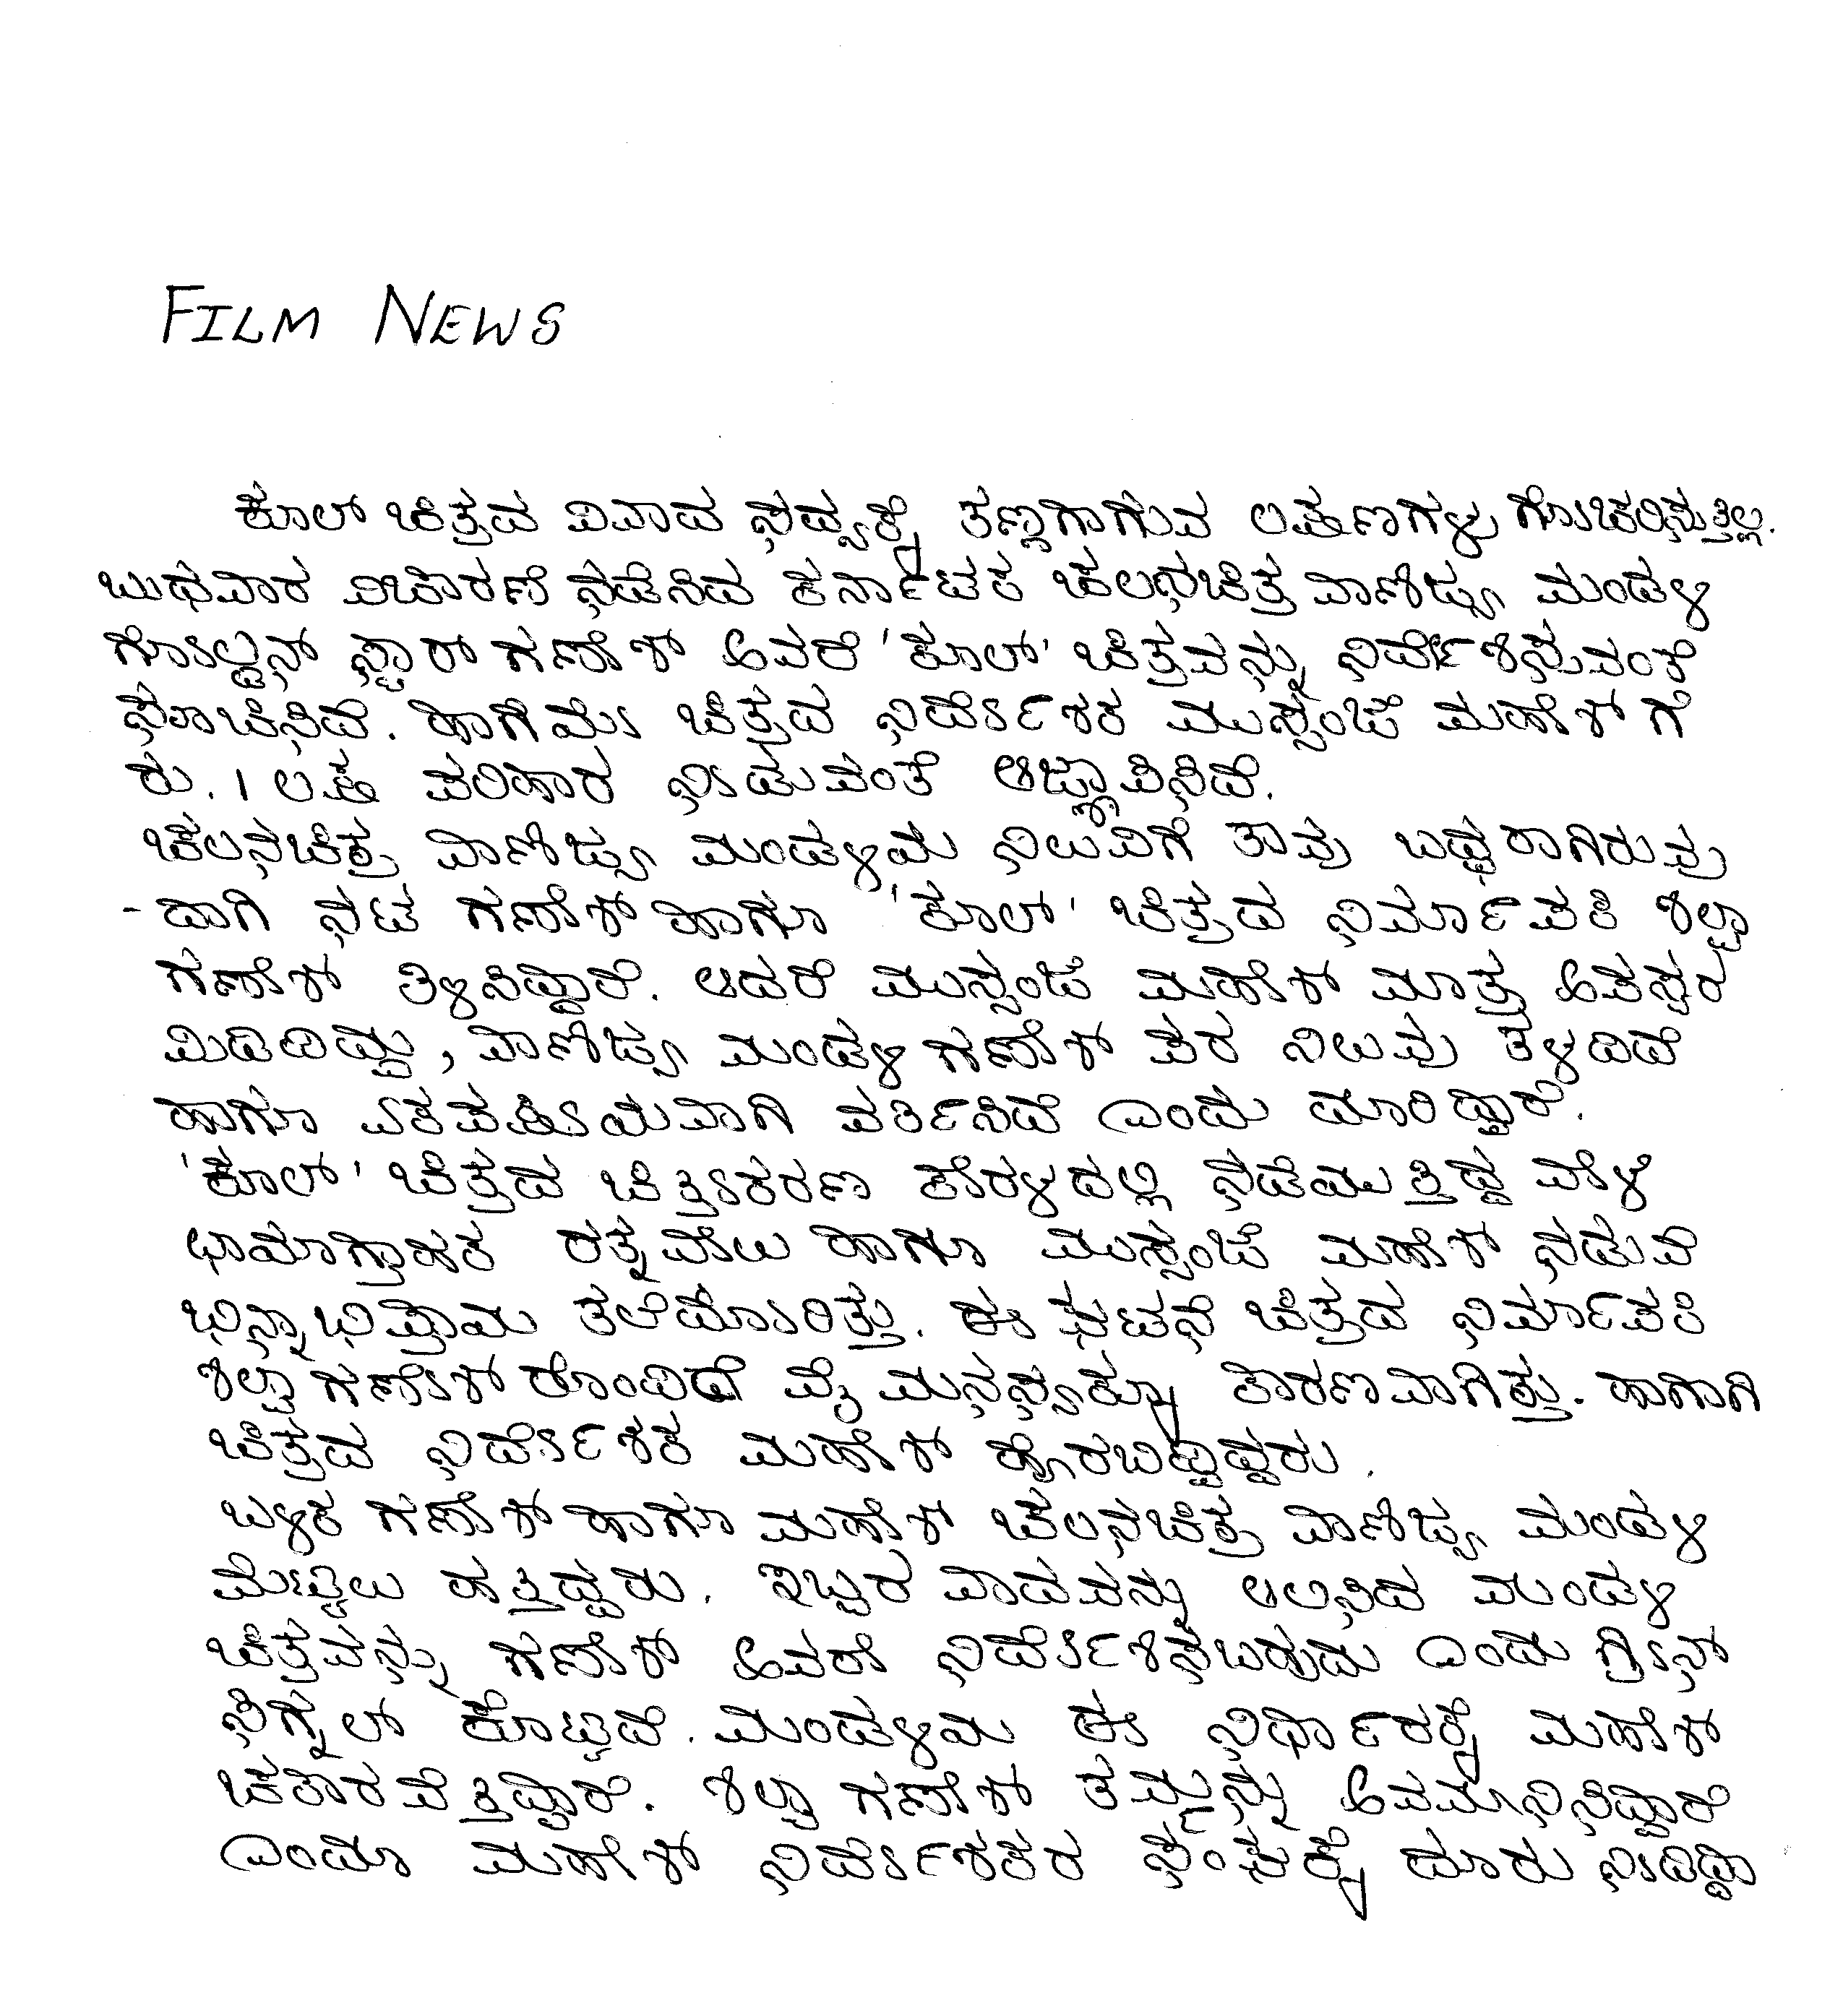 FILM NEWS
ಕೂಲ್ ಚಿತ್ರದ ವಿವಾದ ಸದ್ಯಕ್ಕೆ ತಣ್ಣಗಾಗುವ ಲಕ್ಷಣಗಳು ಗೋಚರಿಸುತ್ತಿಲ್ಲ.
ಬುಧವಾರ ವಿಚಾರಣೆ ನಡೆಸಿದ ಕರ್ನಾಟಕ ಚಲನಚಿತ್ರ ವಾಣಿಜ್ಯ ಮಂಡಳಿ
ಗೋಲ್ಡನ್ ಸ್ಟಾರ್ ಗಣೇಶ್ ಅವರೆ 'ಕೂಲ್' ಚಿತ್ರವನ್ನು ನಿರ್ದೇಶಿಸುವಂತೆ
ಸೂಚಿಸಿದೆ. ಹಾಗೆಯೇ ಚಿತ್ರದ ನಿರ್ದೇಶಕ ಮುಸ್ಸಂಜೆ ಮಹೇಶ್ ಗೆ
ರು. 1 ಲಕ್ಷ ಪರಿಹಾರ ನೀಡುವಂತೆ ಆಜ್ಞಾಪಿಸಿದೆ.
ಚಲನಚಿತ್ರ ವಾಣಿಜ್ಯ ಮಂಡಳಿಯ ನಿಲುವಿಗೆ ತಾವು ಬದ್ಧರಾಗಿರುವು
-ದಾಗಿ ನಟ ಗಣೇಶ್ ಹಾಗೂ 'ಕೂಲ್' ಚಿತ್ರದ ನಿರ್ಮಾಪಕಿ ಶಿಲ್ಪಾ
ಗಣೇಶ್ ತಿಳಿಸಿದ್ದಾರೆ. ಆದರೆ ಮುಸ್ಸಂಜೆ ಮಹೇಶ್ ಮಾತ್ರ ಅಪಸ್ವರ
ಮಿಡಿದಿದ್ದು, ವಾಣಿಜ್ಯ ಮಂಡಳಿ ಗಣೇಶ್ ಪರ ನಿಲುವು ತಳೆದಿದೆ
ಹಾಗೂ ಏಕಪಕ್ಷೀಯವಾಗಿ ವರ್ತಿಸಿದೆ ಎಂದು ದೂರಿದ್ದಾರೆ.
'ಕೂಲ್' ಚಿತ್ರದ ಚಿತ್ರೀಕರಣ ಕೇರಳದಲ್ಲಿ ನಡೆಯುತ್ತಿದ್ದ ವೇಳೆ
ಛಾಯಾಗ್ರಾಹಕ ರತ್ನವೇಲು ಹಾಗೂ ಮುಸ್ಸಂಜೆ ಮಹೇಶ್ ನಡುವೆ
ಭಿನ್ನಾಭಿಪ್ರಾಯ ತಲೆದೋರಿತ್ತು. ಈ ಘಟನೆ ಚಿತ್ರದ ನಿರ್ಮಾಪಕಿ
ಶಿಲ್ಪಾ ಗಣೇಶ್ ರೊಂದಿಗೆ ವೈಮನಸ್ಸಕ್ಕೂ ಕಾರಣವಾಗಿತ್ತು. ಹಾಗಾಗಿ
ಚಿತ್ರದ ನಿರ್ದೇಶಕ ಮಹೇಶ್ ಹೊರಬಿದ್ದಿದ್ದರು.
ಬಳಿಕ ಗಣೇಶ್ ಹಾಗೂ ಮಹೇಶ್ ಚಲನಚಿತ್ರ ವಾಣಿಜ್ಯ ಮಂಡಳಿ
ಮೆಟ್ಟಿಲು ಹತ್ತಿದ್ದರು. ಇಬ್ಬರ ವಾದವನ್ನು ಆಲಿಸಿದ ಮಂಡಳಿ
ಚಿತ್ರವನ್ನು ಗಣೇಶ್ ಅವರೇ ನಿರ್ದೇಶಿಸಬಹುದು ಎಂದು ಗ್ರೀನ್
ಸಿಗ್ನಲ್ ಕೊಟ್ಟಿದೆ. ಮಂಡಳಿಯ ಈ ನಿರ್ಧಾರಕ್ಕೆ ಮಹೇಶ್
ಚಕಾರವೆತ್ತಿದ್ದಾರೆ. ಶಿಲ್ಪಾ ಗಣೇಶ್ ತಮ್ಮನ್ನು ಅವಮಾನಿಸಿದ್ದಾರೆ
ಎಂದೂ ಮಹೇಶ್ ನಿರ್ದೇಶಕರ ಸಂಘಕ್ಕೆ ದೂರು ನೀಡಿದ್ದಾ